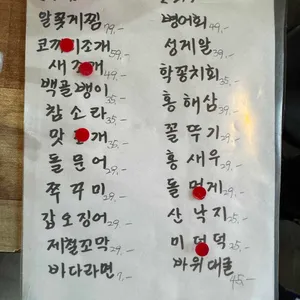 알쫑게찜 79,-
코끼리조개 59,-
새조개 49,-
백골뱅이 35,-
참소라 35,-
맛조개 35,-
돌문어 29,-
쭈꾸미 29,-
갑오징어 29,-
제철조막 29,-
바다라면 7,-
병어회 49,-
성게알 39,-
학꽁치회 35,-
홍해삼 39,-
꼴뚜기 29,-
홍새우 29,-
돌멍게 29,-
산낙지 25,-
미더덕 25,-
바위대굴 45,-